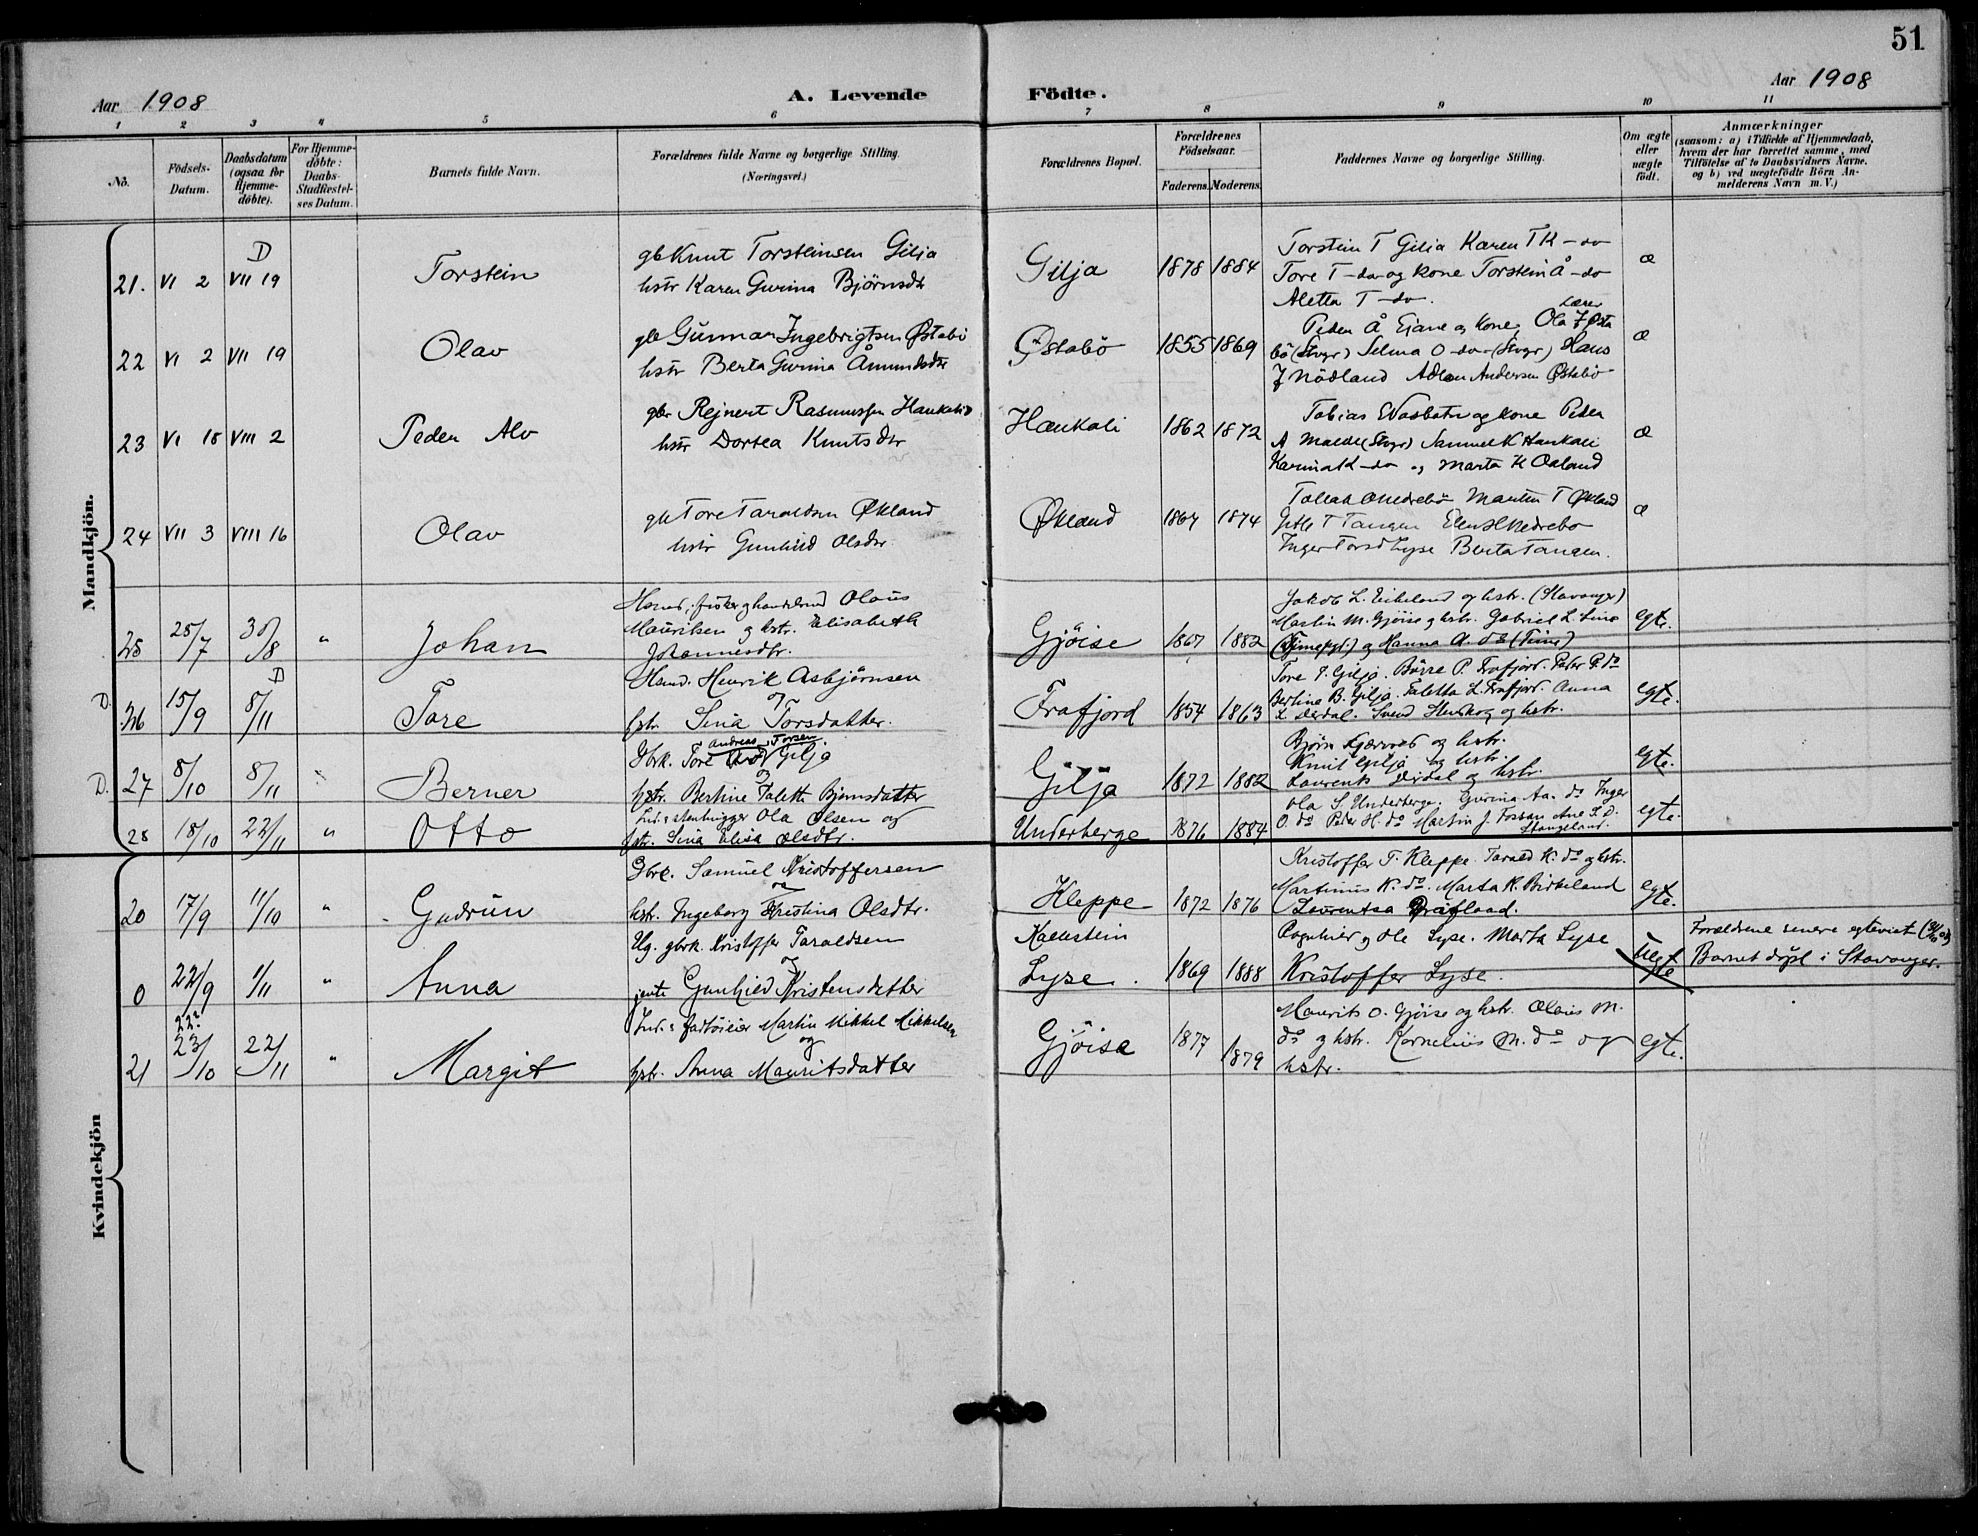 51
Aar 1908 A. Levende Födte. Aar 1908
1 2 3 4 5 6 7 8 9 10 11
No.
Födsels-
Datum.
Daabsdatum
(ogsaa for
Hjemme-
döbte).
For Hjemme-
döbte:
Daabs-
Stadfæstel-
ses Datum.
Barnets fulde Navn.
Forældrenes fulde Navne og borgerlige Stilling.
(Næringsvei.)
Forældrenes Bopæl.
Forældrenes
Födselsaar.
Faderens. Moderens.
Faddernes Navne og borgerlige Stilling.
Om ægte
eller
uægte
födt.
Anmærkninger
(saasom: a) i Tilfælde af Hjemmedaab,
hvem der har forrettet samme, med
Tilföielse af to Daabsvidners Navne.
og b) ved uægtefödte Börn An-
melderens Navn m. V.)
Mandkjön.
21. VI 2 D VII 19 Torstein
gbr Knut Torsteinsen Gilja
hstr Karen Gurina Bjørnsdtr
Gilja 1878 1884
Torstein T Gilja Karen TK - do
Tore T - do og kone Torstein Å - do
Aletta T - do.
æ
22 VI 2 VII 19 Olav
gbr Gunnar Ingebrigtsen Østabö
hstr Berta Gurina Åmundsdtr
Østabö 1855 1869
Peder Å Eiane og kone, Lærer Ola J Østa
bö (Stvgr) Selma O - do - (Stvgr) Hans
J Nödland Andersen Østabö
æ
23 VI 18 VIII 2 Peder Alv
gbr Rejnert Rasmussen Haukali
hstr Dortea Knutsdtr
Haukali 1862 1872
Tobias og kone Peder
A Maldal (Stvgr) Samuel K Haukali
Karina K - do og Marta K Oaland
æ
24 VII 3 VIII 16 Olav
gbr Tore Taraldsen Økland
hstr Gunhild Olsdtr.
Økland 1867 1874
Tollak Nedrebö Martin T Økland
Gitle T Tangen Nedrebo
Inger Torsd Lyse Berta Tangen.
æ
25 25/7 30/8 " Johan
Hsmd., fisker og handelsmd Olaus
Mauritsen og hstr. Elisabeth
Johannesdtr.
Gjöise 1867 1882
Jakob L. Eikeland og hstr. (Stavanger)
Martin M. Gjöise og hstr. Gabriel L. Lima
(Timepgl.) og Hanna A. do (Time)
egte.
D. 26 15/9 D 8/11 Tore
Hsmd. Henrik Asbjørnsen
og
hstr. Sina Torsdatter.
Frafjord 1854 1863
Tore T. Gilja. Börre P. Frafjord. Peder P. do
Bertine B. Gilja. Taletta L. Frafjord. Anna
L Dirdal. Svend og hstr.
egte.
D. 27 8/10 8/11 " Berner
Gbrk. Tore Andreas Torsen Gilja
og
hstr. Bertine Taletta Bjørnsdatter
Gilja 1872 1882
Björn og hstr.
Knut Gilja og hstr.
Laurents Dirdal og hstr.
egte.
28 18/10 22/11 " Otto
Ind. = stenhugger Ola Olsen og
hstr. Sina Elisa Olsdtr.
Underberge 1876 1884
Ola S. Underberge. Gurina Aa. do Inger
O. do Peder H. do Martin J. Fossan Ane S. D.
Stangeland.
egte.
Kvindekjön
20 17/9 11/10 " Gudrun
Gbrk. Samuel Kristoffersen
og
hstr. Ingeborg Kristina Olsdtr.
Kleppe 1872 1876
Kristoffer T. Kleppe. Tarald K. do og hstr.
Martinius K. do. Marta K. Birkeland
Laurentsa
egte.
0 22/9 1/11 " Anna
Ug. gbrk. Kristoffer Taraldsen
og
jente Gunhild Kristensdatter
Kallestein
Lyse. 1869 1888
Ragnhild og Ole Lyse. Marta Lyse
Kristoffer Lyse.
Uegte
Forældrene senere egteviet
Barnet döpt i Stavanger.
21 22? 23/10 22/11 " Margit
Ind. = fartöieier Martin Mikkel Mikkelsen
og
hstr. Anna Mauritsdatter
Gjöise 1877 1879
Maurits O. Gjöise og hstr. Olaus M.
do og hstr. Kornelius M. do og
hstr.
egte.